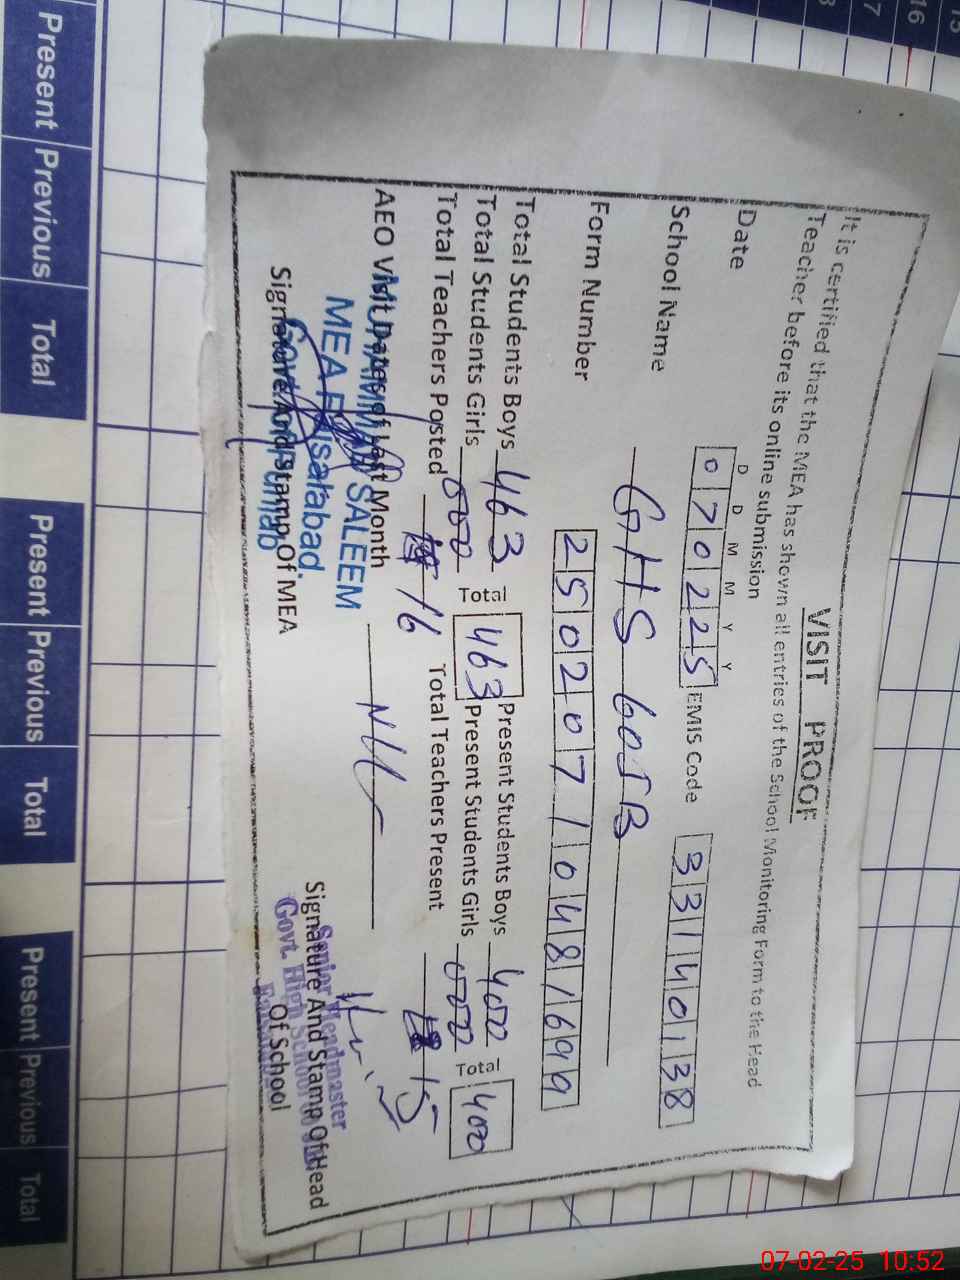 VISIT PROOF
It is certified that the MEA has shown all entries of the School Monitoring Form to the Head
Teacher before its online submission
D D M M Y Y
Date 070225 EMIS Code 33140138
School Name GHS 60JB
Form Number 25020710481699
Total Students Boys 463 Total 463 Present Students Boys 400 Total 400
Total Students Girls 000 Present Students Girls 000
Total Teachers Posted 16 Total Teachers Present 15
AEO Visit Dates of Last Month Nil
SALEEM
MEA Faisalabad.
Govt. of Punjab
Signature And Stamp Of MEA
Signature And Stamp Of Head
Of School
Senior Headmaster
Govt. High School
Present Previous Total Present Previous Total Present Previous Total
16
17
15
07-02-25 10:52